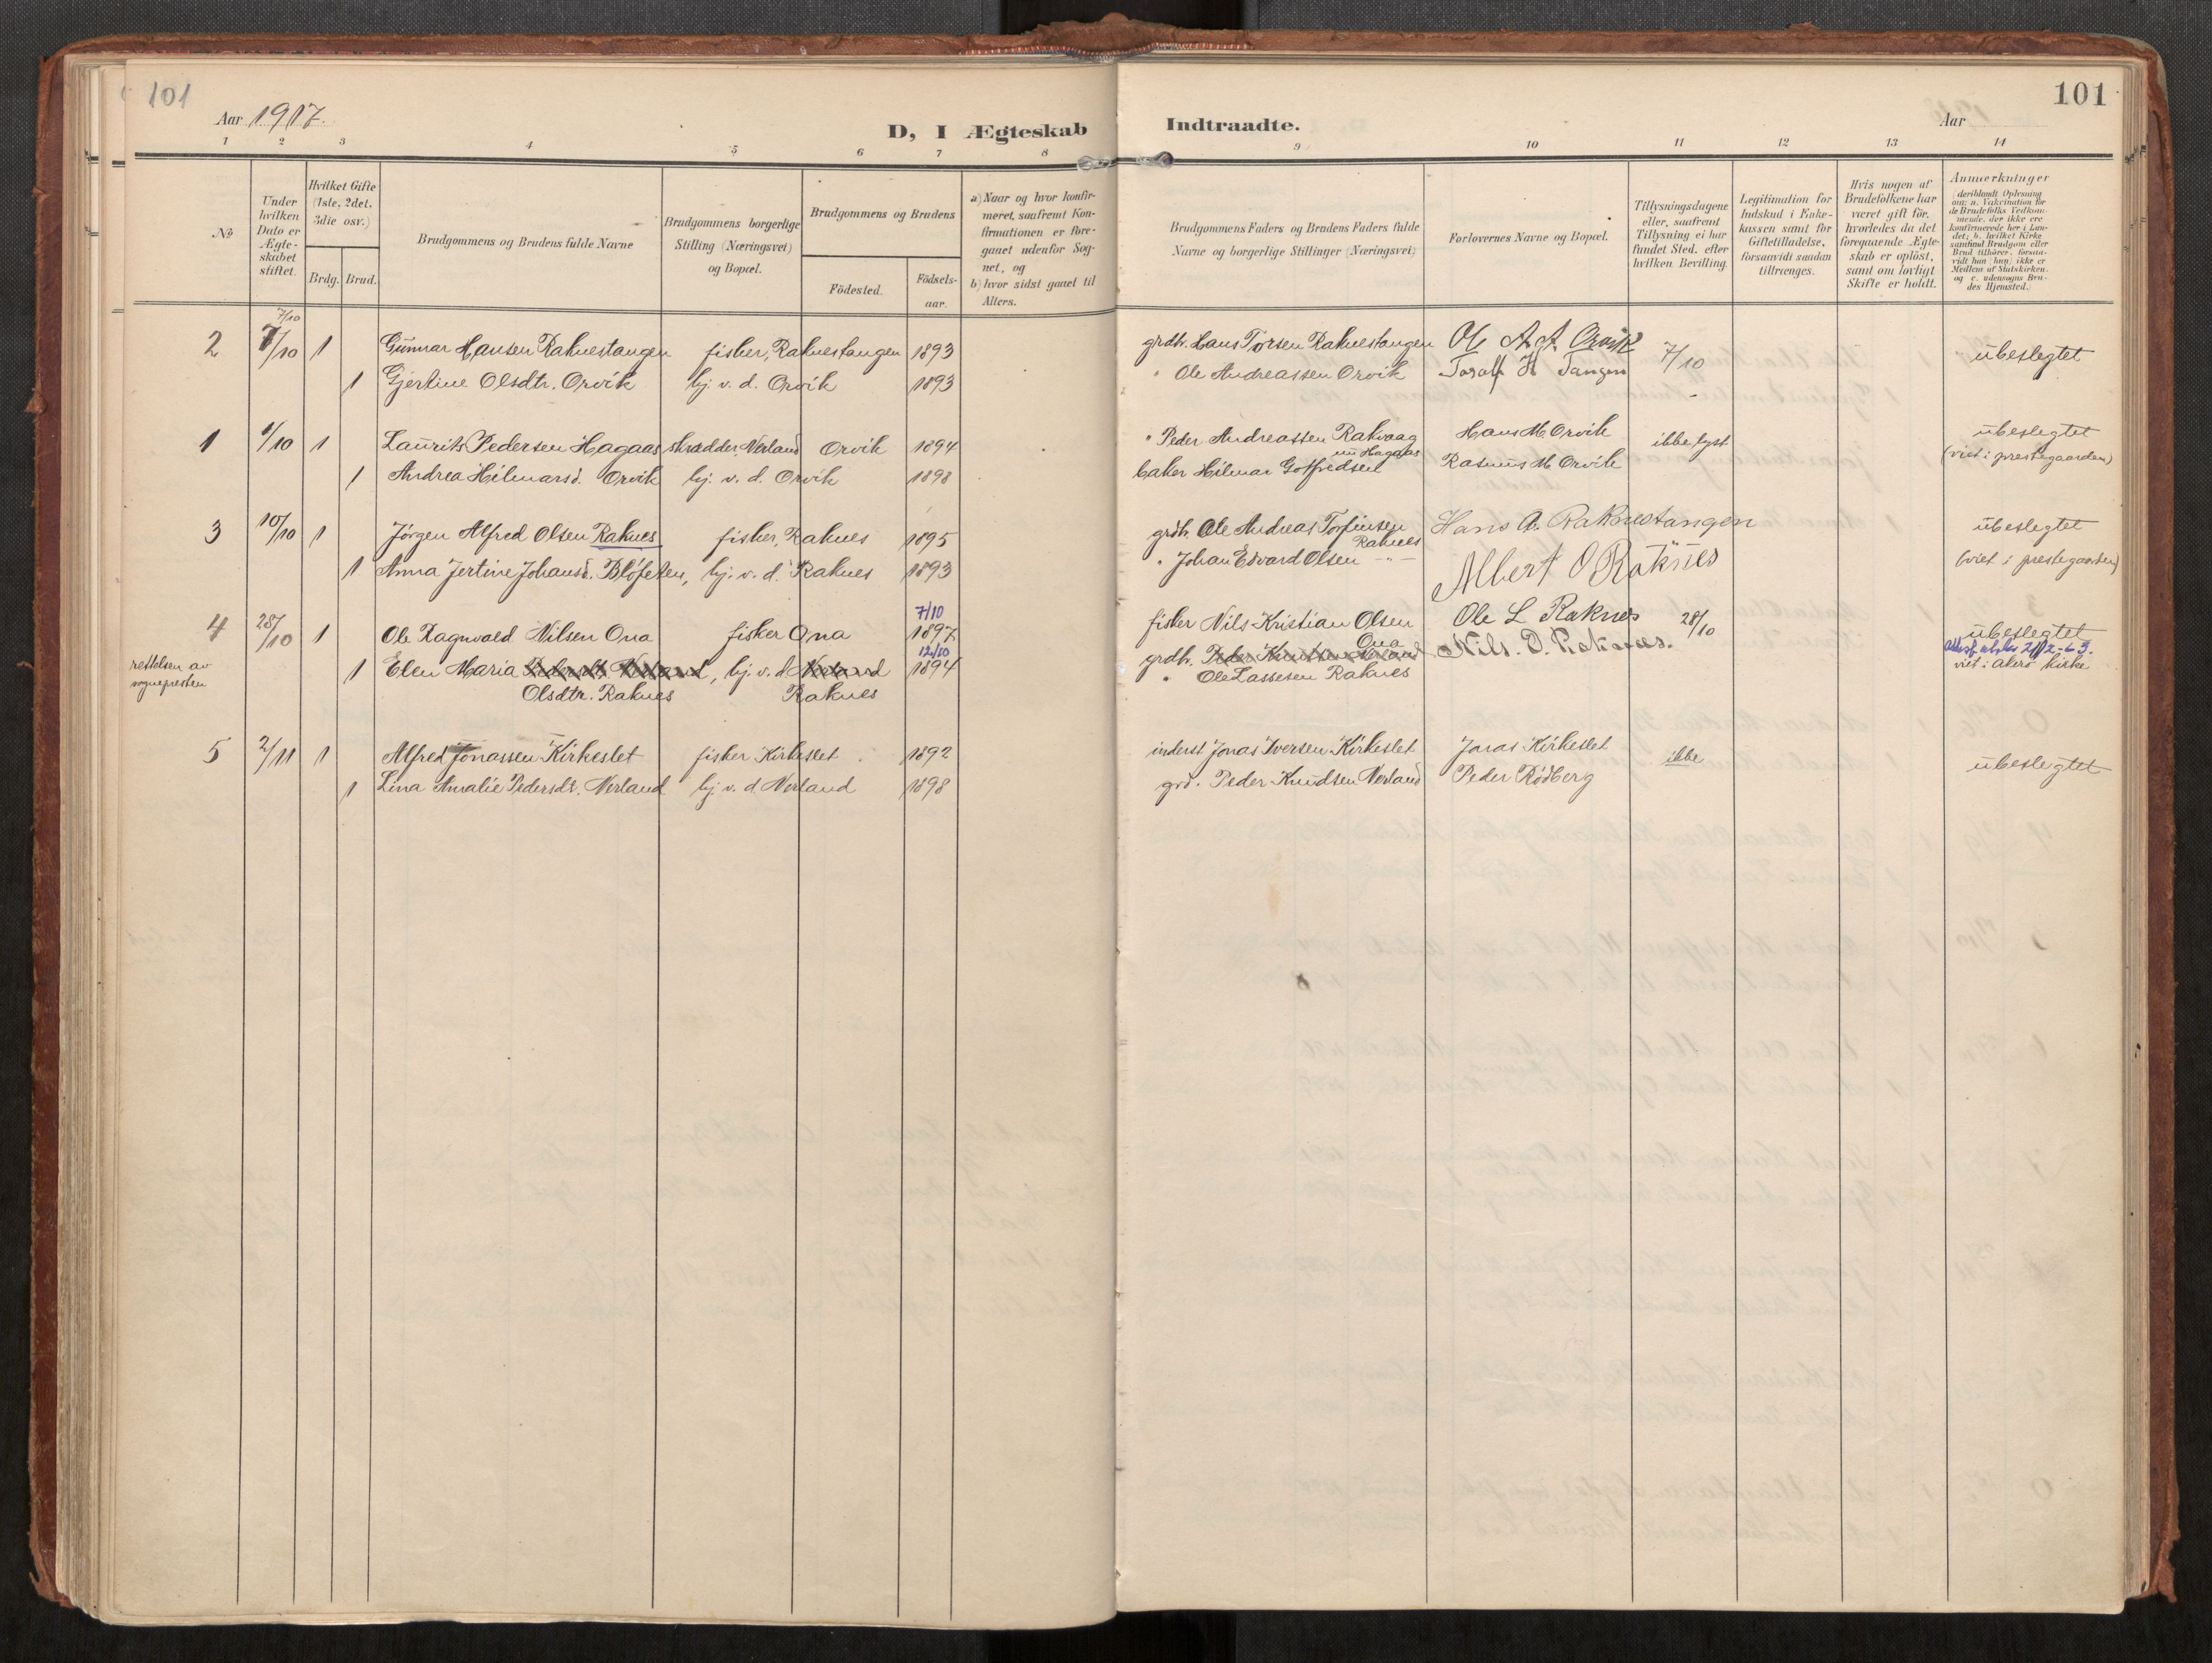 101
Aar 1917.
D, I Ægteskab
1 2 3 4 5 6 7 8
No
Under hvilken Dato er Ægteskabet stiftet.
Hvilket Gifte (1ste, 2det, 3die osv.)
Brdg. Brud.
Brudgommens og Brudens fulde Navne
Brudgommens borgerlige Stilling (Næringsvei) og Bopæl.
Brudgommens og Brudens
Födested.
Födsels-aar.
a) Naar og hvor konfirmeret, saafremt Konfirmationen er foregaaet udenfor Sognet, og
b) hvor sidst gaaet til Alters.
7/10
2 7/10 1 Gunnar Hansen Raknestangen fisker, Raknestangen 1893
1 Gjertine Olsdtr. Orvik hj. v. d. Orvik 1893
1 1/10 1 Laurits Pedersen Hagaas skrædder, Nerland Orvik 1894
1 Andrea Hilmarsd. Orvik hj. v. d. Orvik 1898
3 10/10 1 Jørgen Alfred Olsen Raknes fisker, Raknes 1895
1 Anna Jertine Johansd. hj. v. d. Raknes 1893
7/10
4 28/10 1 Ole Ragnvald Nilsen Ona fisker Ona 1897
12/10
rettelsen av sognepresten
1 Elen Maria hj. v. d. Nerland 1894
Olsdtr. Raknes Raknes
5 2/11 1 Alfred Jonassen Kirkeslet fisker Kirkeslet 1892
1 Lina Amalie Pedersdtr. Nerland hj. v. d Nerland 1898
101
Indtraadte.
Aar
9 10 11 12 13 14
Brudgommens Faders og Brudens Faders fulde Navne og borgerlige Stillinger (Næringsvei)
Forlovernes Navne og Bopæl.
Tillysningsdagene eller, saafremt Tillysning ei har fundet Sted, efter hvilken Bevilling.
Legitimation for Indskud i Enkekassen samt for Giftetilladelse, forsaavidt saadan tiltrænges.
Hvis nogen af Brudefolkene har været gift för, hvorledes da det foregaaende Ægteskab er oplöst, samt om lovligt Skifte er holdt.
Anmerkninger (deriblandt Oplysning om: a. Vakcination for de Brudefolks Vedkommende, der ikke ere konfirmerede her i Landet; b. hvilket Kirkesamfund Brudgom eller Brud tilhører, forsaavidt han (hun) ikke er Medlem af Statskirken, og c. udensogns Brudes Hjemsted.)
grdbr. Hans Torsen Raknestangen Ole A. A. Orvik 7/10 ubeslegtet
" Ole Andreassen Orvik Toralf H Tangen
" Peder Andreassen Rakvaag Hans M Orvik ikke lyst ubeslegtet
nu Hagaas
baker Hilmar Gotfredsen Rasmus M Orvik (viet i prestegaarden)
grdbr. Ole Andreas Torfinsen Hans A. Raknestangen ubeslegtet
Raknes
" Johan Edvard Olsen -"- Albert O Raknes (viet i prestegaarden)
fisker Nils Kristian Olsen Ole L Raknes 28/10 ubeslegtet
Ona
grdbr. Peder Knudsen Nerland Nils. O. Raknes. viet i Akerø kirke
" Ole Lassesen Raknes
inderst Jonas Iversen Kirkeslet Jonas Kirkeslet ikke ubeslegtet
grd. Peder Knudsen Nerland Peder Rødberg